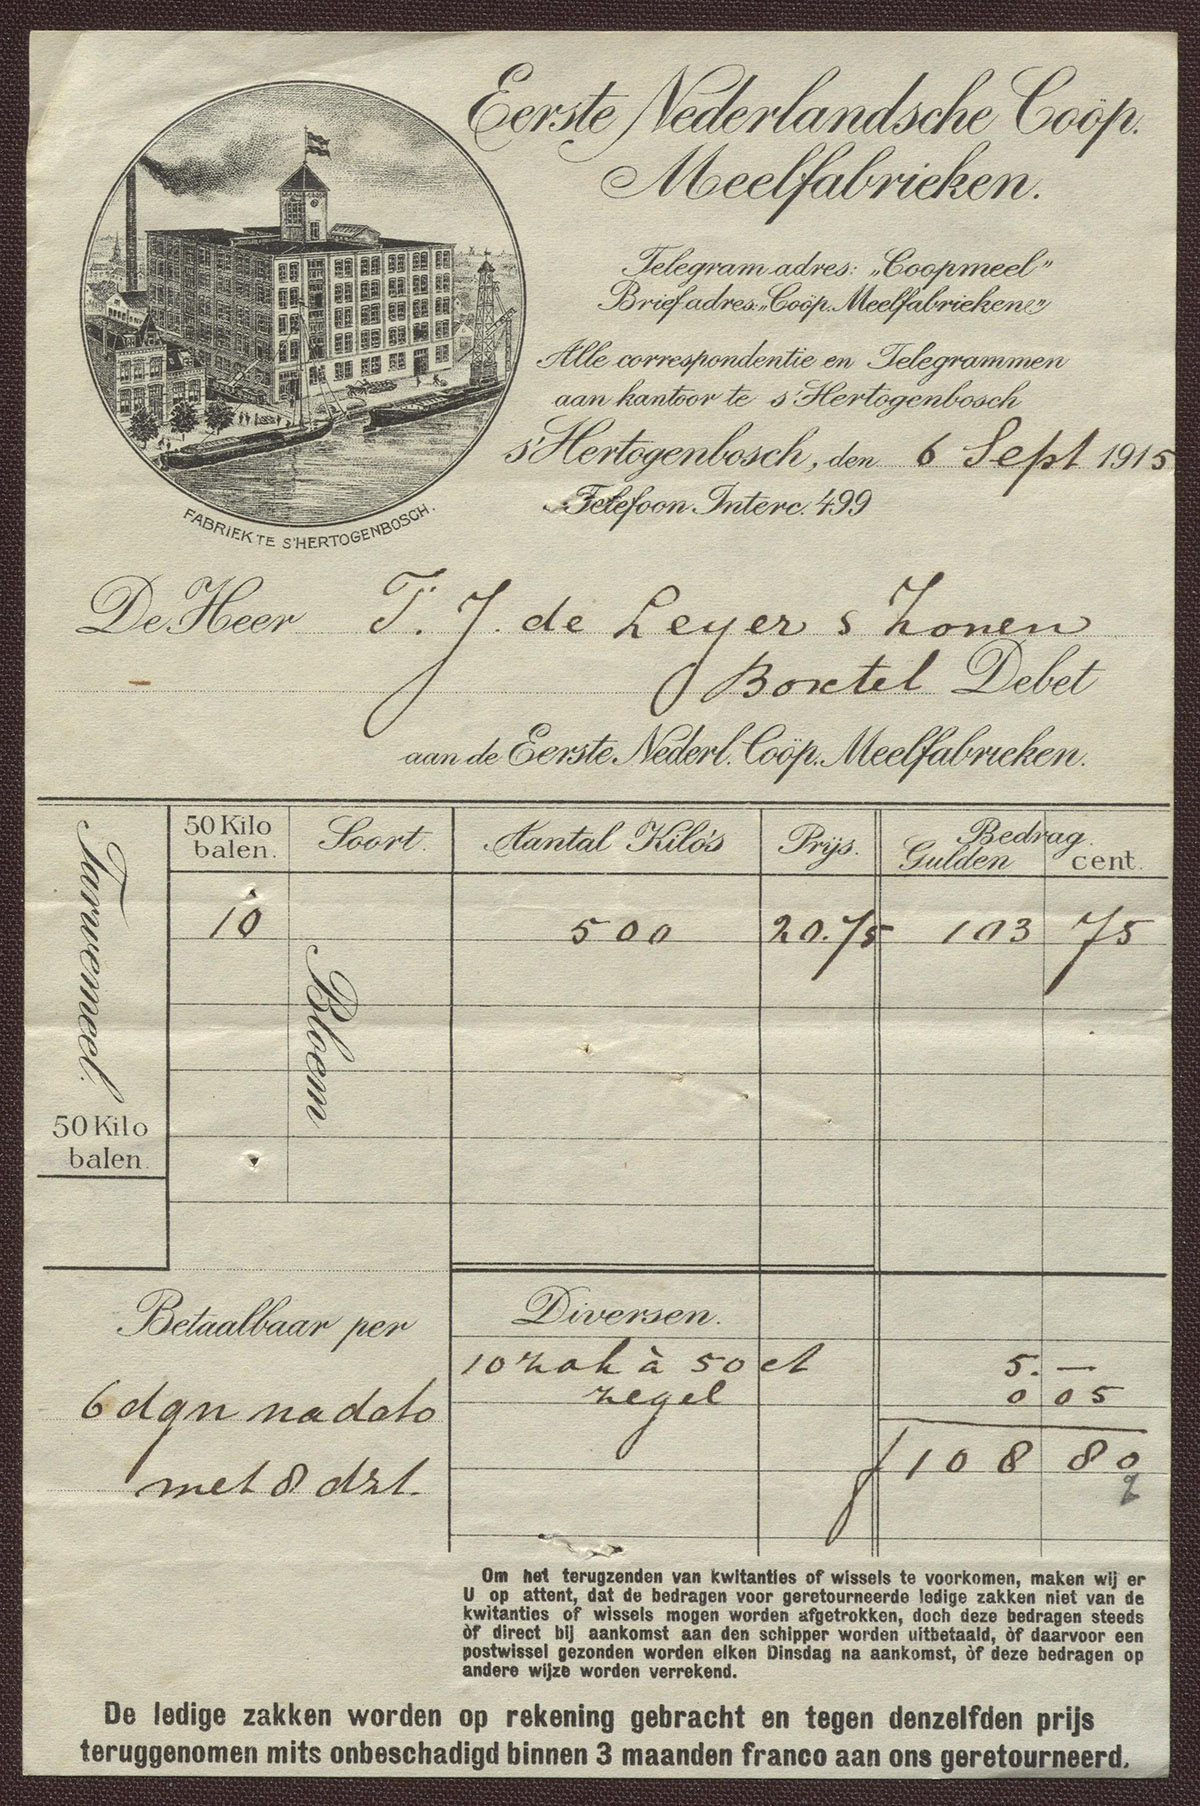 Eerste Nederlandsche Coöp.
Meelfabrieken.
Telegram adres: „Coopmeel"
Briefadres: „Coöp. Meelfabrieken"
Alle correspondentie en Telegrammen
aan kantoor te s'Hertogenbosch
s'Hertogenbosch, den 6 Sept 1915
Telefoon Interc. 499
FABRIEK TE S'HERTOGENBOSCH.
De Heer F. J. de Leyer & Zonen
Boxtel Debet
aan de Eerste Nederl. Coöp. Meelfabrieken.
Tarwemeel.
50 Kilo
balen.
50 Kilo balen. Soort. Aantal Kilo's Prijs. Bedrag Gulden cent.
10 Bloem 500 20.75 103 75
Betaalbaar per
6 dgn na dato
met 8 dzt.
Diversen.
10 zak à 50 ct 5. —
zegel 0 05
f 108 80
Om het terugzenden van kwitanties of wissels te voorkomen, maken wij er
U op attent, dat de bedragen voor geretourneerde ledige zakken niet van de
kwitanties of wissels mogen worden afgetrokken, doch deze bedragen steeds
òf direct bij aankomst aan den schipper worden uitbetaald, òf daarvoor een
postwissel gezonden worden elken Dinsdag na aankomst, òf deze bedragen op
andere wijze worden verrekend.
De ledige zakken worden op rekening gebracht en tegen denzelfden prijs
teruggenomen mits onbeschadigd binnen 3 maanden franco aan ons geretourneerd.